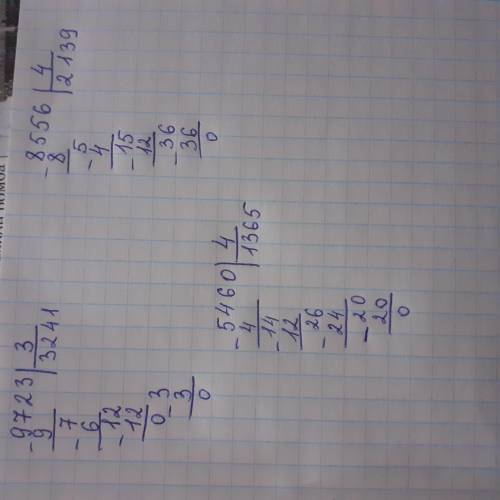 -9723 | 3
9 | 3241
-7
6
-12
12
03
-3
0
-8556 | 4
8 | 2139
-5
4
-15
12
-36
36
0
-5460 | 4
4 | 1365
-14
12
-26
24
-20
20
0